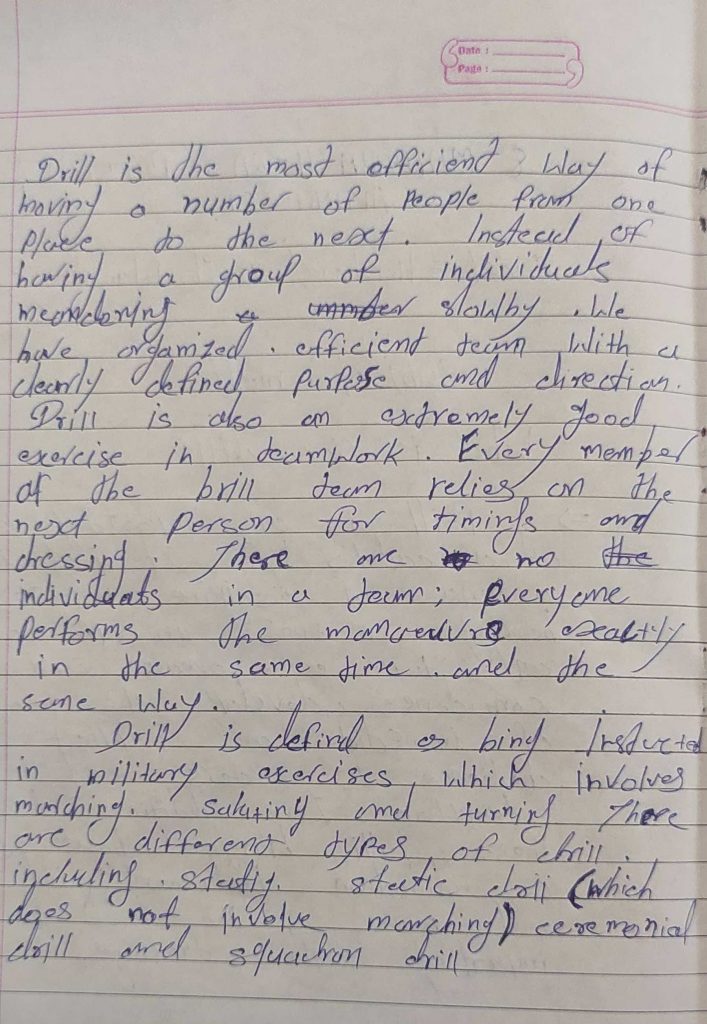 Date :
Page :
Drill is the most efficient way of
moving a number of People from one
Place to the next. Instead of
having a group of individuals
meandering slowly . We
have organized . efficient team with a
clearly defined purpose and direction.
Drill is also an extremely good
exercise in teamwork . Every member
of the brill team relies on the
next Person for timings and
dressing . There are no
individuals in a team ; Everyone
Performs the manoeuvre exactly
in the same time . and the
same way .
Drill is defind as bing Instucted
in military exercises, which involves
marching. saluting and turning There
are different types of drill .
including . static drill (which
does not involve marching) ceremonial
drill and squadron drill